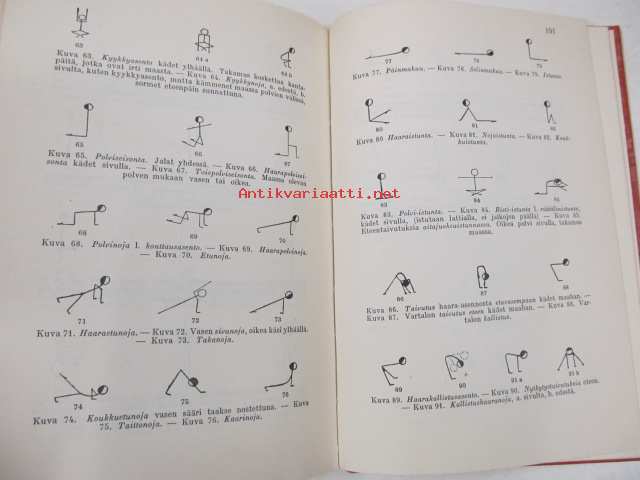 63
64 a
64 b
Kuva 63. Kyykkyasento kädet ylhäällä. Takamus koskettaa kanta-
päitä, jotka ovat irti maasta. — Kuva 64. Kyykkynoja, a. edestä, b.
sivulta, kuten kyykkyasento, mutta kämmenet maassa polvien välissä,
sormet eteenpäin suunnattuna.
65
66
67
Kuva 65. Polviseisonta. Jalat yhdessä. — Kuva 66. Haarapolvisei-
sonta kädet sivulla. — Kuva 67. Toispolviseisonta. Maassa olevan
polven mukaan vasen tai oikea.
68
69
70
Kuva 68. Polvinoja l. konttausasento. — Kuva 69. Haarapolvinoja.
— Kuva 70. Etunoja.
71
72
73
Kuva 71. Haaraetunoja. — Kuva 72. Vasen sivunoja, oikea käsi ylhäällä.
— Kuva 73. Takanoja.
74
75
76
Kuva 74. Koukkuetunoja vasen sääri taakse nostettuna. — Kuva
75. Taittonoja. — Kuva 76. Kaarinoja.
191
77
76
75
Kuva 77. Päinmakuu. — Kuva 78. Selinmakuu. — Kuva 79. Istunta.
80
81
82
Kuva 80 Haaraistunta. — Kuva 81. Nojaistunta. — Kuva 82. Kouk-
kuistunta.
83
84
85
Kuva 83. Polvi-istunta. — Kuva 84. Risti-istunta l. räätäli­istunta,
kädet sivulla, (istutaan lattialla, ei jalkojen päällä) — Kuva 85.
Eteentaivutuksia aitajuoksuistunnassa. Oikea polvi sivulla, takamus
maassa.
86
87
88
Kuva 86. Taivutus haara-asennosta etuosempaan kädet maahan. —
Kuva 87. Vartalon taivutus eteen kädet maahan. — Kuva 88. Var-
talon kallistus.
89
90
91 a
91 b
Kuva 89. Haarakallistusasento. — Kuva 90. Nytkytystaivutuksia eteen.
— Kuva 91. Kallistushaaranoja, a. sivulta, b. edestä.
Antikvariaatti.net